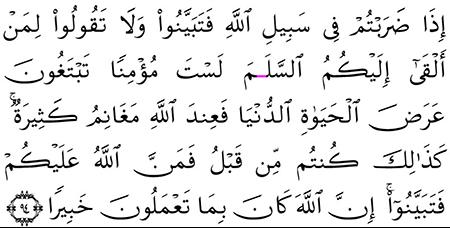 إِذَا ضَرَبْتُمْ فِى سَبِيلِ ٱللَّهِ فَتَبَيَّنُوا۟ وَلَا تَقُولُوا۟ لِمَنْ
أَلْقَىٰٓ إِلَيْكُمُ ٱلسَّلَـٰمَ لَسْتَ مُؤْمِنًا تَبْتَغُونَ
عَرَضَ ٱلْحَيَوٰةِ ٱلدُّنْيَا فَعِندَ ٱللَّهِ مَغَانِمُ كَثِيرَةٌ ۚ
كَذَٰلِكَ كُنتُم مِّن قَبْلُ فَمَنَّ ٱللَّهُ عَلَيْكُمْ
فَتَبَيَّنُوٓا۟ ۚ إِنَّ ٱللَّهَ كَانَ بِمَا تَعْمَلُونَ خَبِيرًا ٩٤